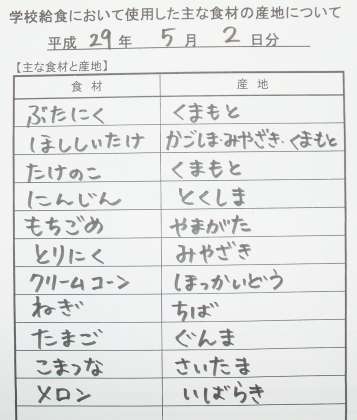 学校給食において使用した主な食材の産地について
平成 29 年 5 月 2 日分
【主な食材と産地】
食材 産地
ぶたにく くまもと
ほししいたけ かごしま・みやざき・くまもと
たけのこ くまもと
にんじん とくしま
もちごめ やまがた
とりにく みやざき
クリームコーン ほっかいどう
ねぎ ちば
たまご ぐんま
こまつな さいたま
メロン いばらき